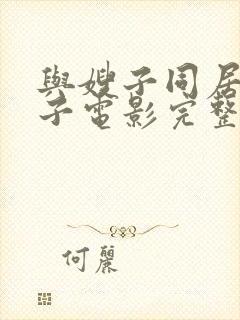 與嫂子同居
子電影完整
何麗